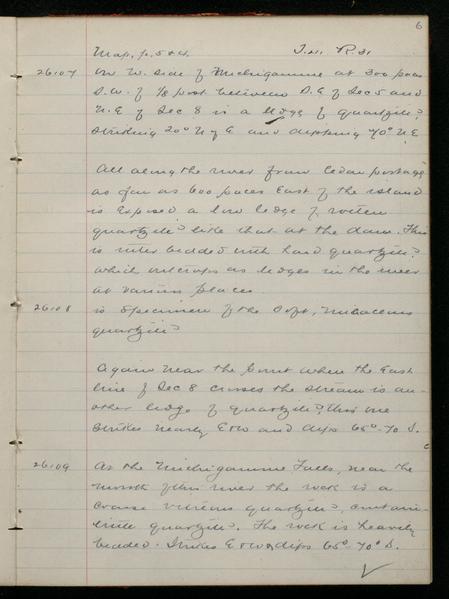 6
Map, p. 5 & 4. T.41 R.31
26107 On W. side of Michigamme at 300 paces
S.W. of 1/8 post between S.E of Sec 5 and
N.E of Sec 8 is a ledge of quartzite?
striking 20° N of E and dipping 70° N.E
All along the river from Cedar portage
as far as 600 paces East of the island
is exposed a low ledge of rotten
quartzite? like that at the dam. This
is inter bedded with hard quartzite?
which outcrops as ledges in the river
at various places
26108 is Specimen of the Soft, Micaceous
quartzite?
Again near the point where the East
line of Sec 8 crosses the stream is an-
other ledge of quartzite?, this one
strikes nearly E & W and dips 65°-70 S.
26109 At the Michigamme Falls, near the
mouth of this river the rock is a
coarse vitreous quartzite,
quartzite. The rock is heavily
bedded. Strikes E & W & dips 65°-70° S.